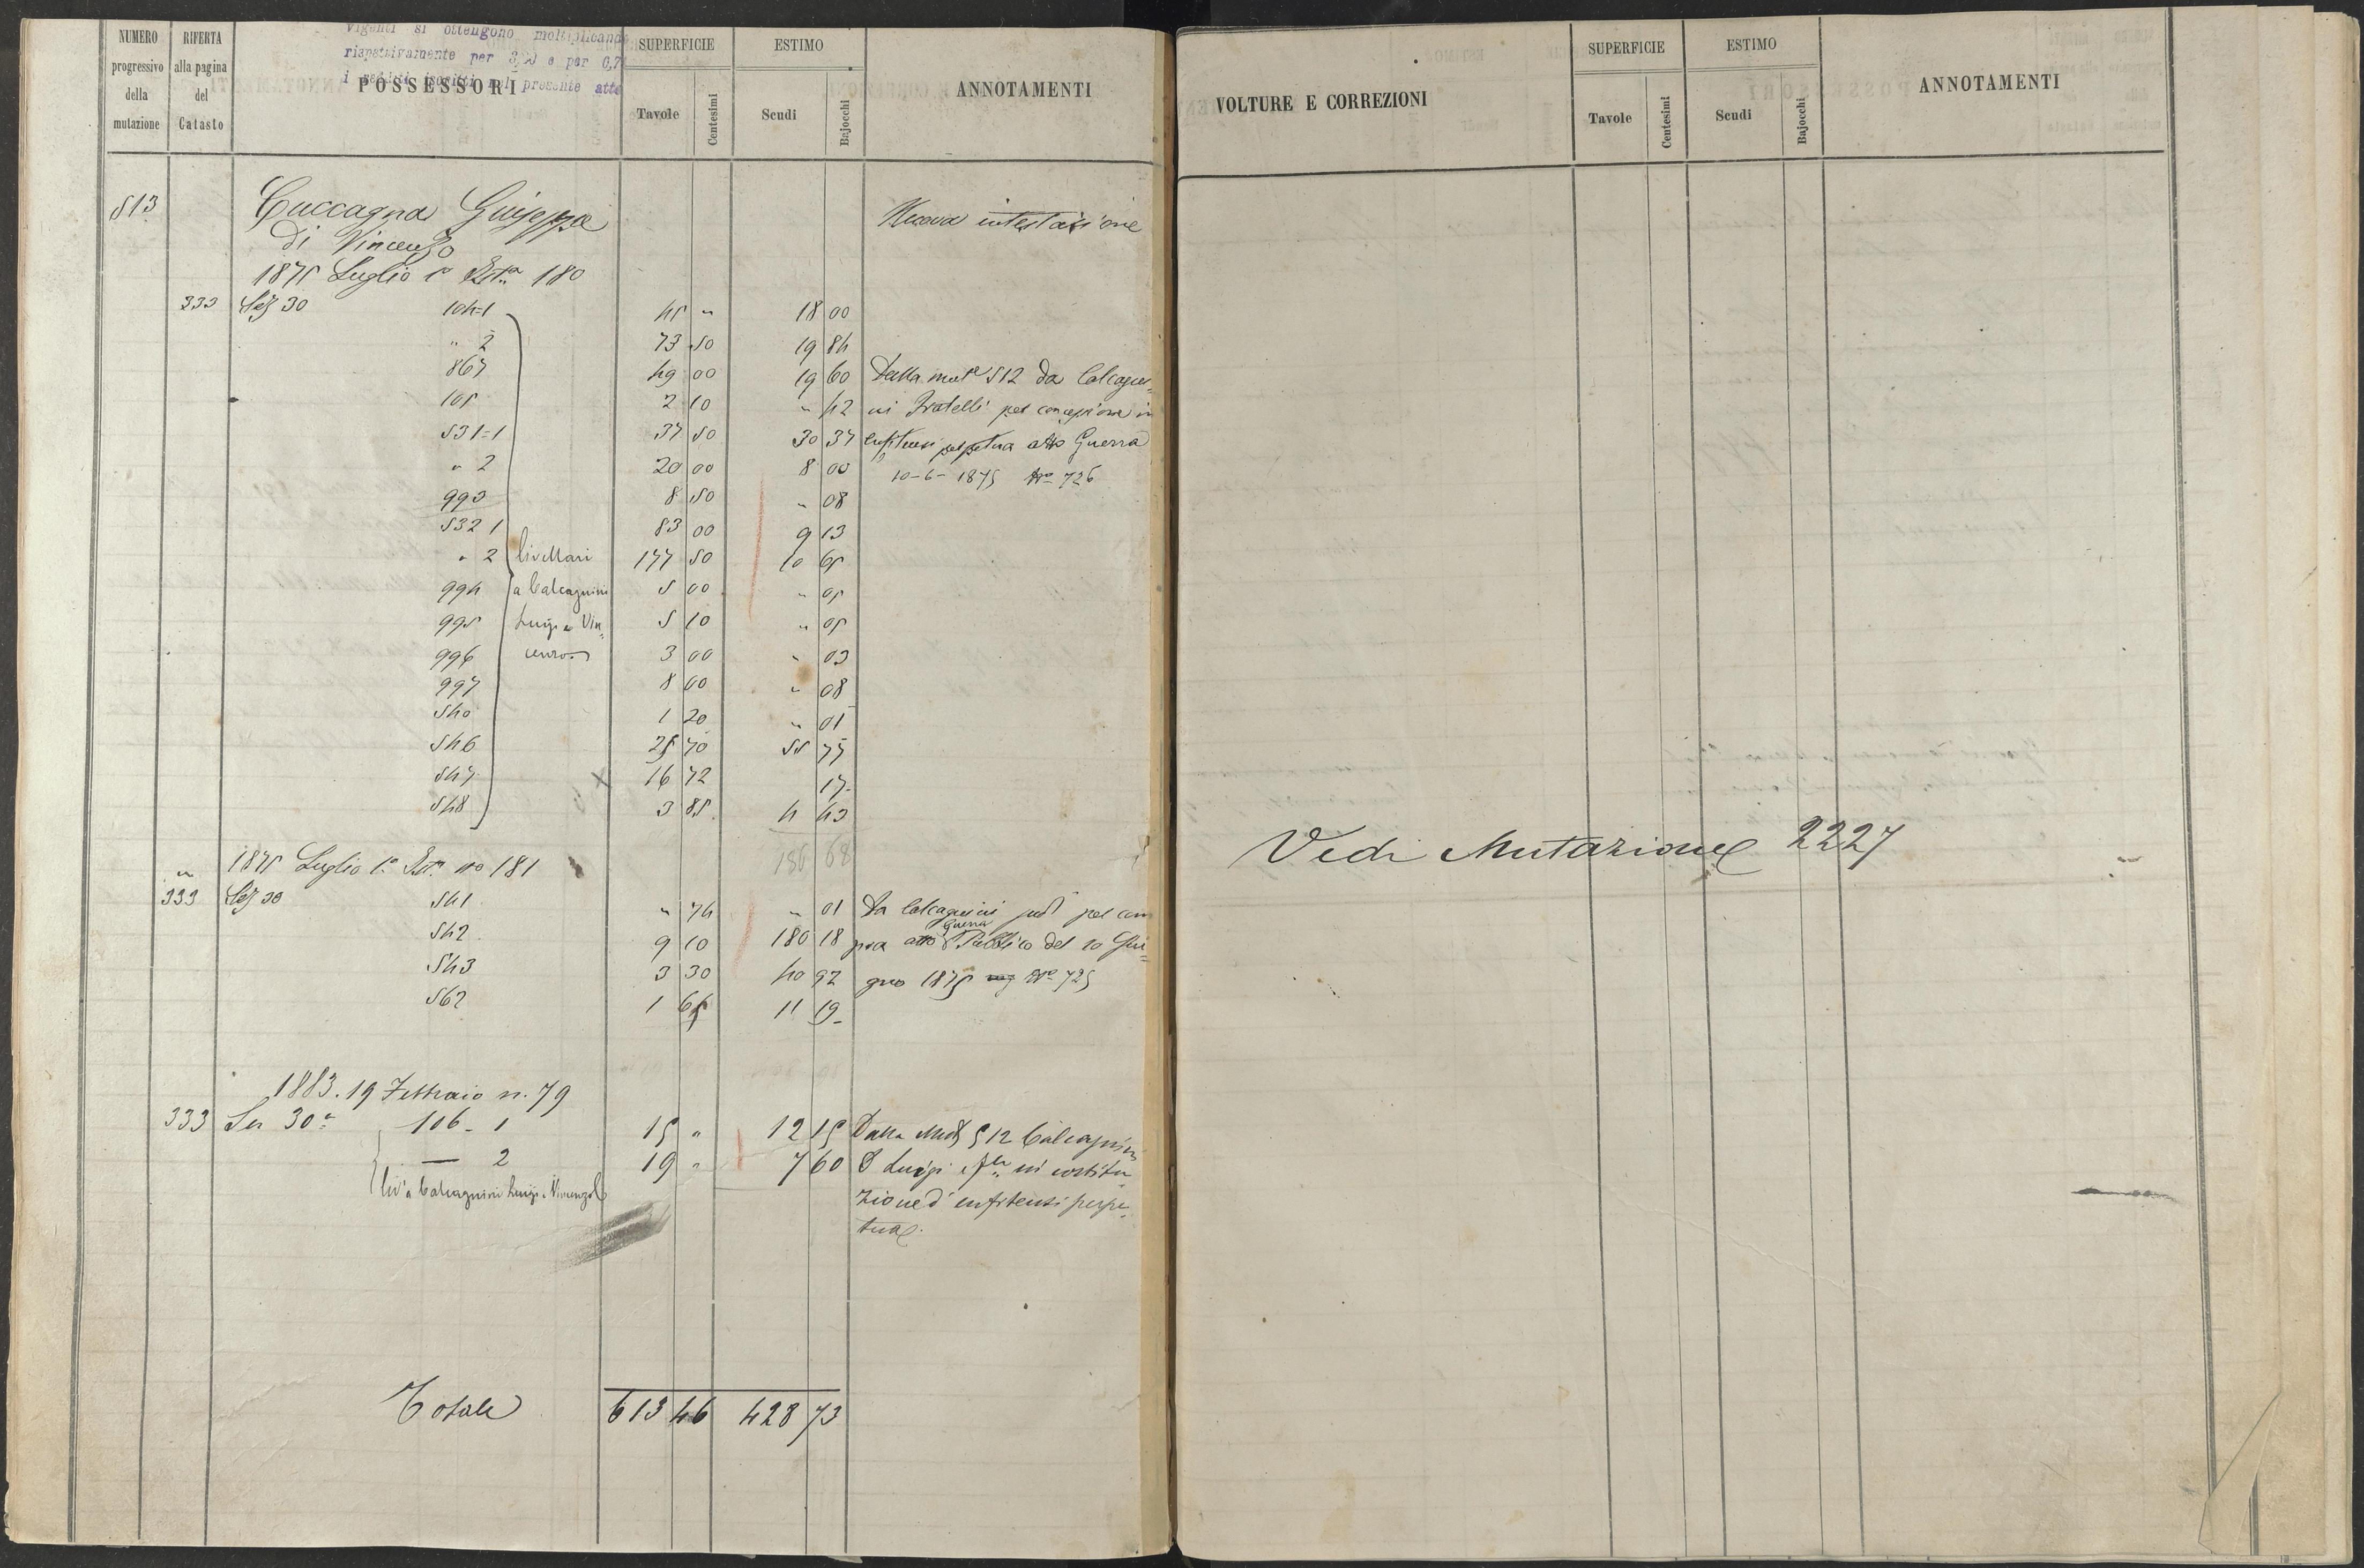 Vigenti si ottengono moltiplicand
rispettivamente per 3,50 e per 0,7
i redditi iscritti nel presente atto
NUMERO progressivo della mutazione | RIFERTA alla pagina del Catasto | POSSESSORI | SUPERFICIE Tavole Centesimi | ESTIMO Scudi Bajocchi | ANNOTAMENTI
513 Cuccagna Giuseppe Nuova intestazione
di Vincenzo
1875 Luglio 1° Ista 180
333 Sez 30 104=1 45 " 18 00
" 2 73 50 19 84
867 49 00 19 60 Dalla mute 512 da Calcagni=
105 2 10 " 42 ni Fratelli per concessione in
531=1 37 50 30 37 enfiteusi perpetua atto Guerra
" 2 20 00 8 00 10-6-1875 No 726
993 8 50 " 08
532 1 83 00 9 13
" 2 livellari 177 50 10 65
994 a Calcagnini 5 00 " 05
995 Luigi e Vin= 5 10 " 05
996 cenzo 3 00 " 03
997 8 00 " 08
540 1 20 " 01
546 25 70 55 75
547 x 16 72 17-
548 3 85 4 43
186 68
" 1875 Luglio 1° Ista no 181
333 Sez 30 541 " 74 " 01 Da Calcagnini sudi per com
542 9 10 180 18 pra atto Guerra Pubblico del 10 Giu=
543 3 30 40 92 gno 1875 No 725
562 1 65 11 19-
1883. 19 Febbraio n. 79
333 Sez 30a 106 - 1 15 " 12 15 Dalla Mut 512 Calcagnini
— 2 19 " 7 60 Luigi e fllo in costitu=
liv a Calcagnini Luigi e Vincenzo zione d' enfiteusi perpe=
tua.
Totale 613 46 428 73
VOLTURE E CORREZIONI | SUPERFICIE Tavole Centesimi | ESTIMO Scudi Bajocchi | ANNOTAMENTI
Vedi Mutazione 2227